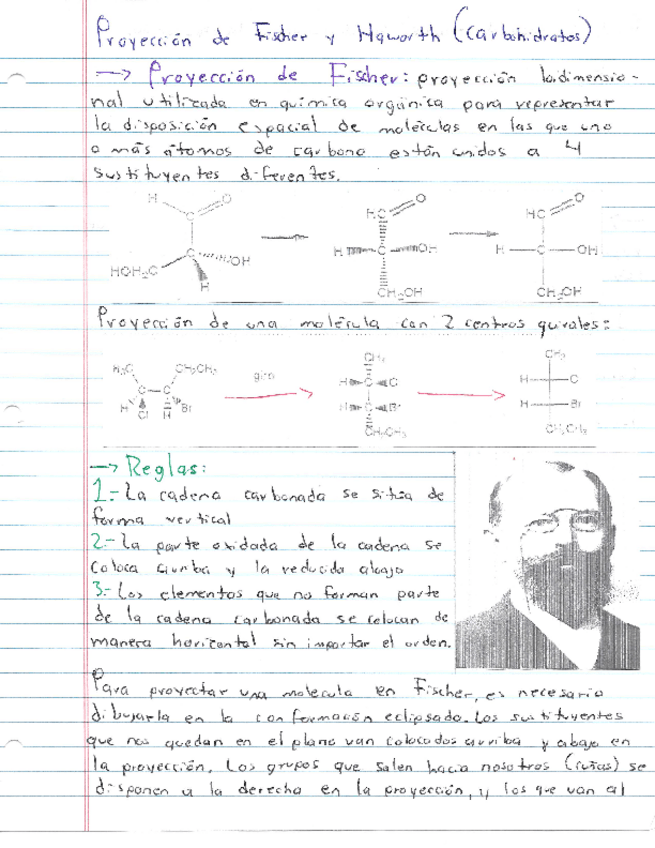 Proyección de Fischer y Haworth (carbohidratos)
→ Proyección de Fischer: proyección bidimensio-
nal utilizada en química orgánica para representar
la disposición espacial de moléculas en las que uno
o más átomos de carbono están unidos a 4
sustituyentes diferentes.
H O HC O HC O
C H C OH H C OH
HOH₂C OH
H CH₂OH CH₂OH
Proyección de una molécula con 2 centros quirales:
H₃C CH₂CH₃ giro CH₃ CH₃
C C H C C H C
H Cl H Br H C Br H Br
CH₂CH₃ CH₂CH₃
→ Reglas:
1.- La cadena carbonada se sitúa de
forma vertical
2.- La parte oxidada de la cadena se
coloca arriba y la reducida abajo
3.- Los elementos que no forman parte
de la cadena carbonada se colocan de
manera horizontal sin importar el orden.
Para proyectar una molecula en Fischer, es necesario
dibujarla en la conformación eclipsada. Los sustituyentes
que nos quedan en el plano van colocados arriba y abajo en
la proyección. Los grupos que salen hacia nosotros (cuñas) se
disponen a la derecha en la proyección, y los que van al